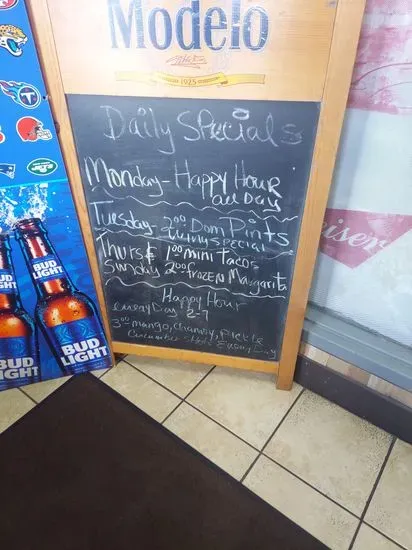 Modelo
1925
Daily Specials
Monday - Happy Hour
all Day
Tuesday - 2.00 Dom Pints
special
Thurs & 1.00 mini Tacos
Sunday 2.00 frozen Margarita
Happy Hour
everyDay 2-7
3.00 mango, Chamoy, Pickle
Cucumber Shots Every Day
BUD LIGHT
BUD LIGHT
BUD LIGHT
BUD LIGHT
JETS
eiser